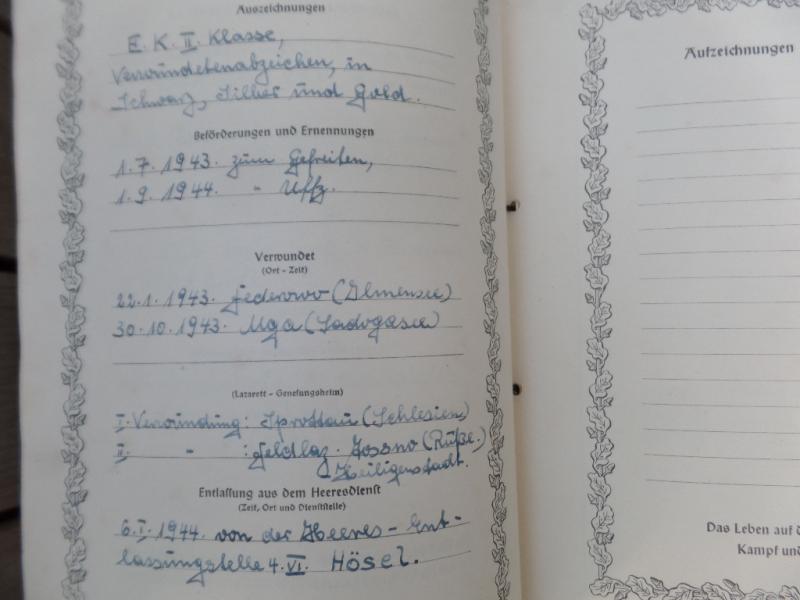 Auszeichnungen
E. K. II. Klasse,
Verwundetenabzeichen, in
Schwarz, Silber und Gold.
Beförderungen und Ernennungen
1. 7. 1943 zum Gefreiten,
1. 9. 1944. " Uffz.
Verwundet
(Ort - Zeit)
22. 1. 1943. (Ilmensee)
30. 10. 1943. Mga (Ladogasee)
(Lazarett - Genesungsheim)
I. Verwundung: Sprottau (Schlesien)
II. " : Feldlaz.
Heiligenstadt.
Entlassung aus dem Heeresdienst
(Zeit, Ort und Dienststelle)
6. I. 1944. von der Heeres - Ent-
lassungstelle 4. VI. Hösel.
Aufzeichnungen
Das Leben auf
Kampf und